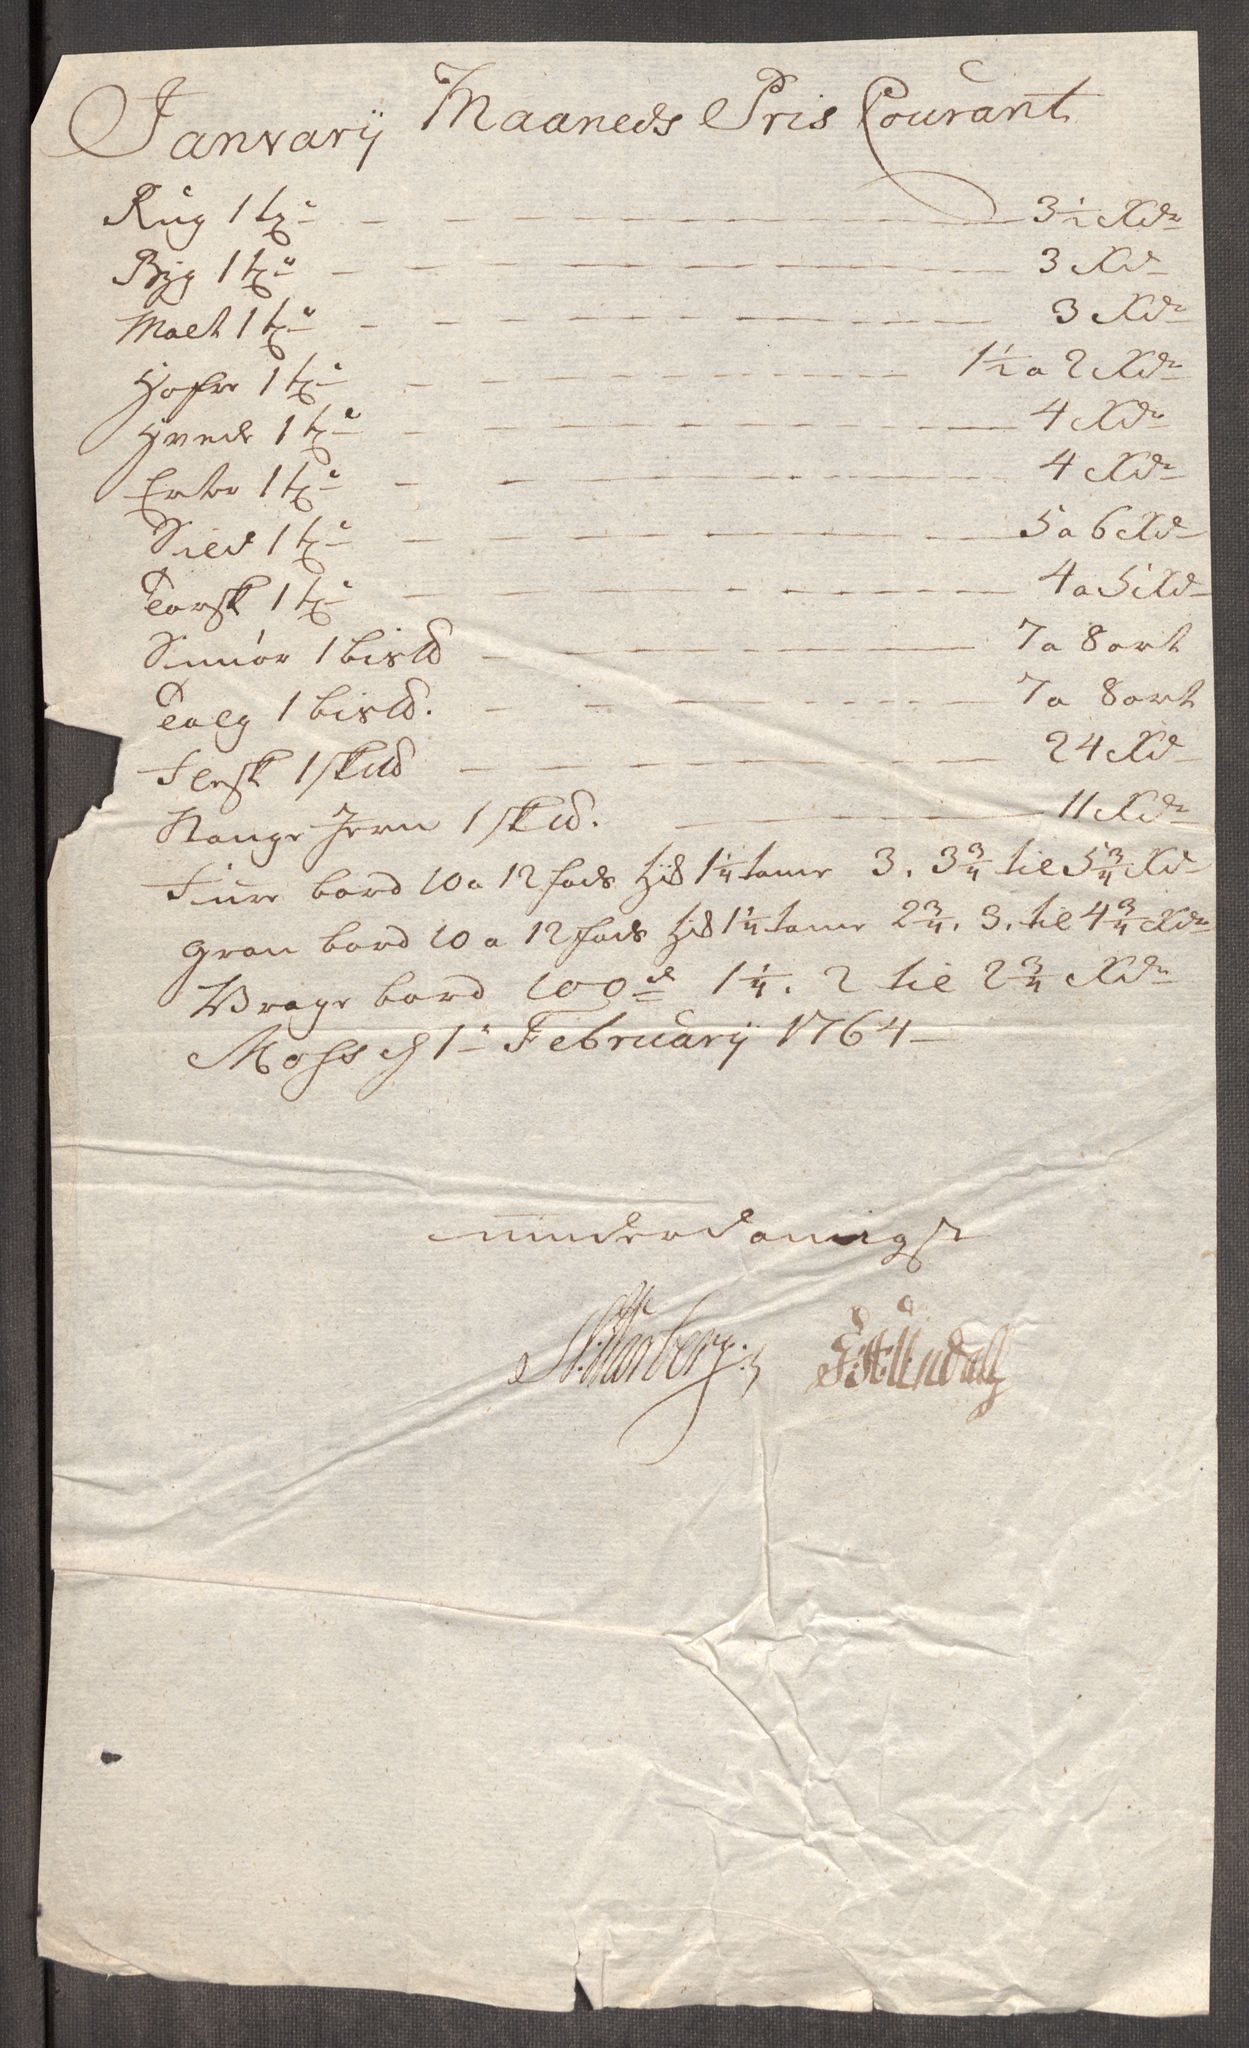 Janvarÿ Maaneds Pris Courant
Rug 1 tꝫ 3½ Xdr
Bÿg 1 tꝫ 3 Xd
Malt 1 tꝫ 3 Xdr
Hafre 1 tꝫ 1½ a 2 Xdr
Hvede 1 tꝫ 4 Xdr
Erter 1 tꝫ 4 Xdr
Sild 1 tꝫ 5 a 6 Xd
Torsk 1 tꝫ 4 a 5 Xd
Smiør 1 bis℔ 7 a 8 ort
Talg 1 bis℔. 7 a 8 ort
Flesk 1 sk℔ 24 Xd
Stange Jern 1 sk℔. 11 Xdr
Fiure bord 10 a 12 fods 1¼ tome 3. 3¾ til 5¾ Xd
gran bord 10 a 12 fods 1¼ tome 2¾. 3. til 4¾ Xdr
Vrage bord 100de 1¼. 2 til 2¾ Xdr
Moss d 1te Februarÿ 1764
underdanigst